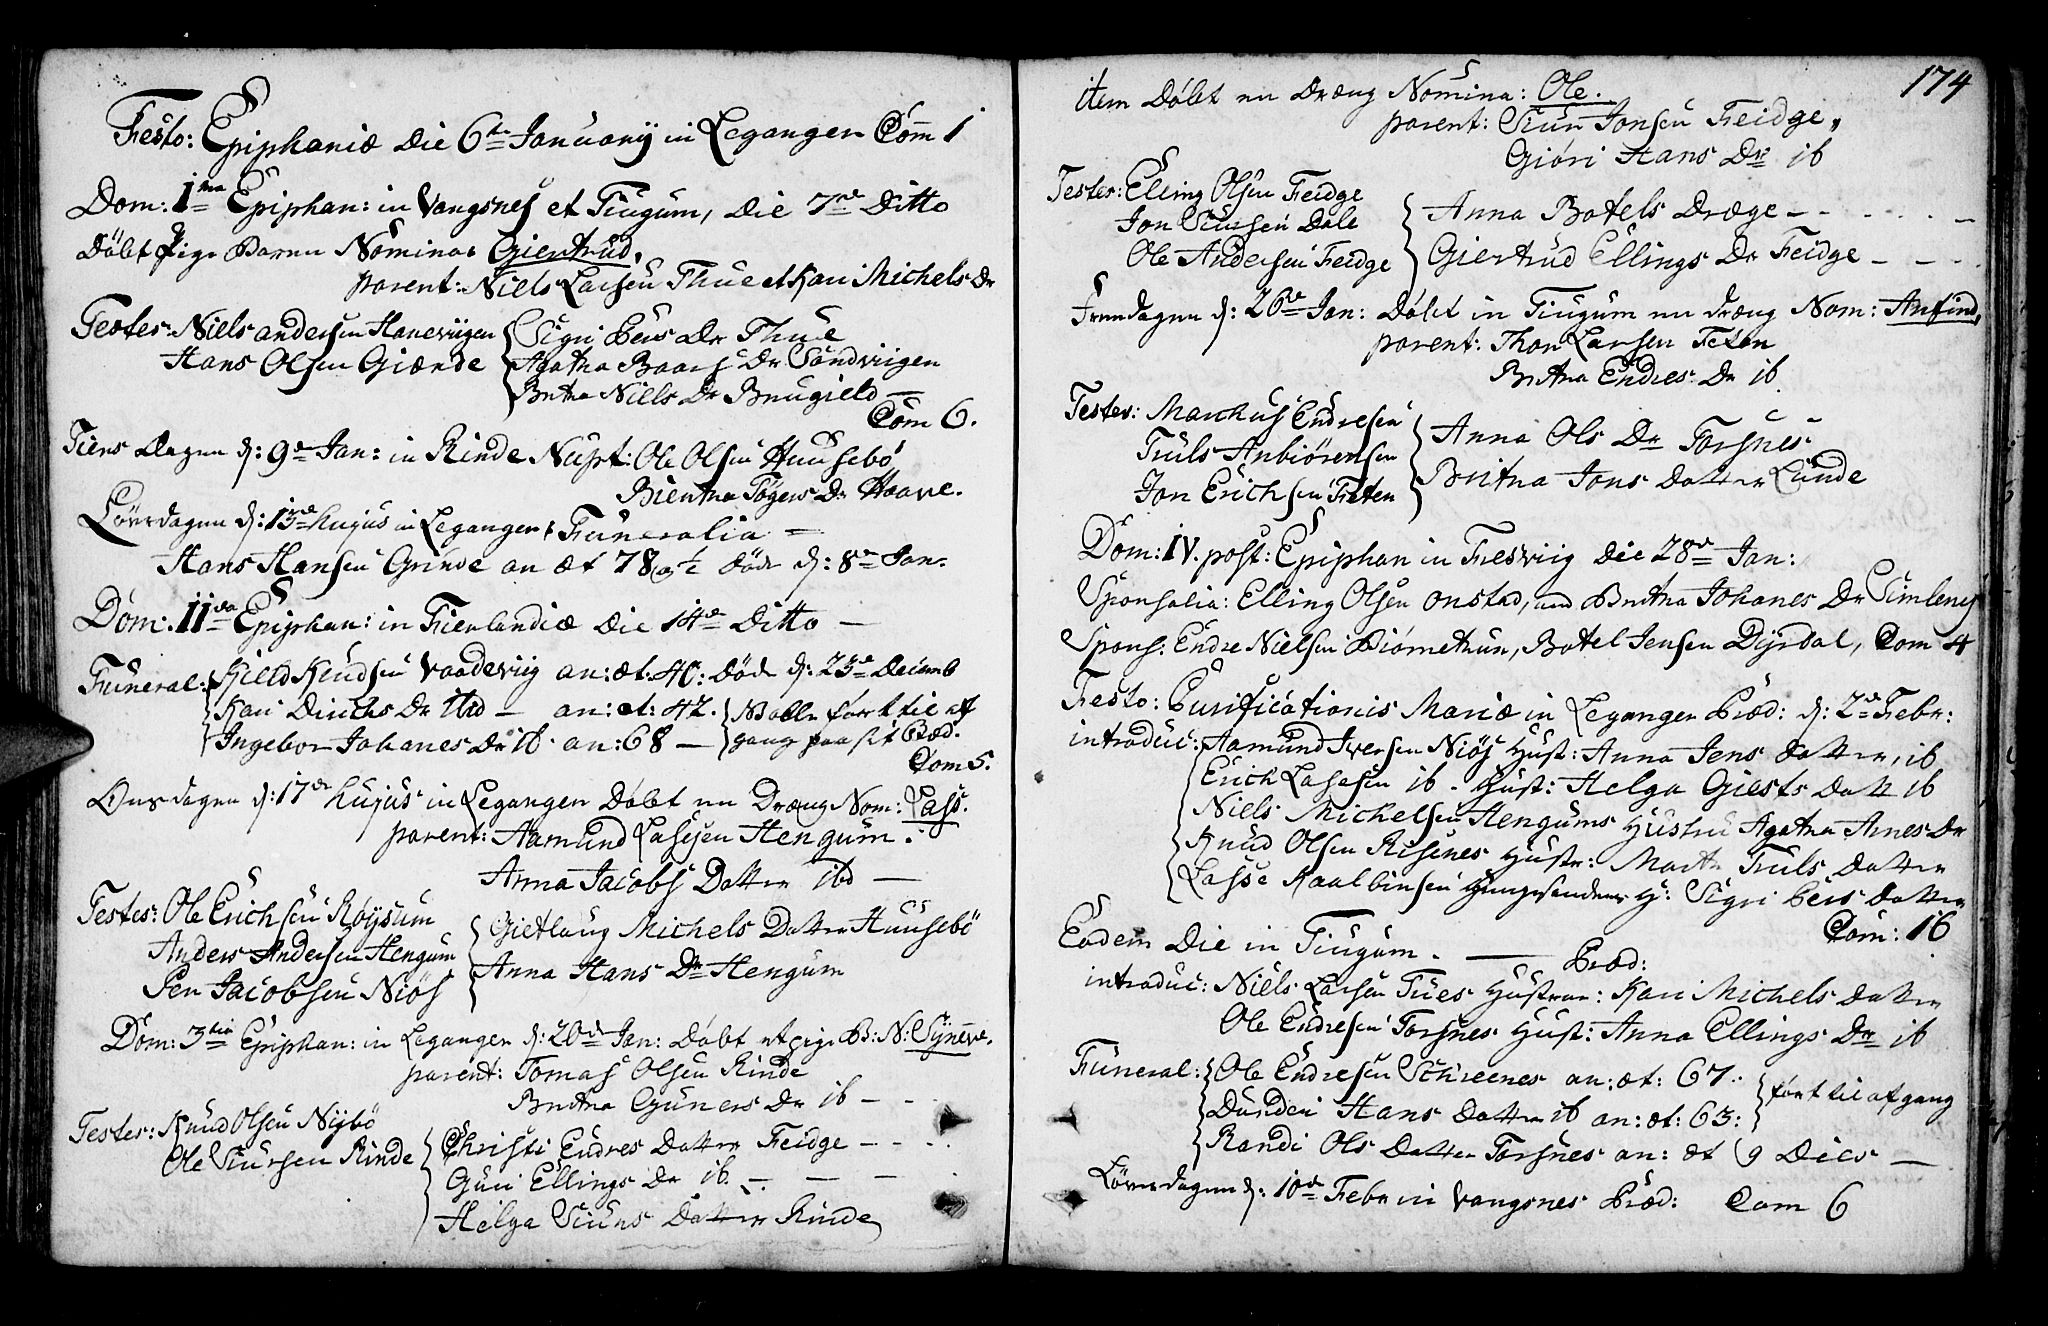 Festo: Epiphaniæ Die 6te January in Leganger Com 1
Dom: 1ma Epiphan: in Vangsnes et Tiugum, Die 7de Ditto
Døbt Pige Barnn Nomina: Giertrud,
parent: Niels Larsen Thue et Kari Michels Dr
Testes: Niels andersen Haneviigen { Sigri Pers Dr Thue
Hans Olsen Giænde { Agatha Baars Dr Sandviigen
Britha Niels Dr Brugield —
Com 6.
Tiens Dagen d: 9de Jan: in Rinde Nupt: Ole Olsen Huusebó
Brentha Togers Dr Haave.
Löverdagen d: 13de hujus in Leganger Funeralia —
Hans Hansen Grinde an æt 78 ½ død d: 8de Jan:
Dom: IIda Epiphan: in Fierlandiæ Die 14de Ditto —
Funeral: { Kield Knudsen Vaadeviig an: æt: 40: død d: 23de Decemb
Kari Dirichs Dr Ibid — an: æt: 42. { Wælle ført til af
Ingebor Johanes Dr ib an: 68 — { gang paa sit Præd.
Com 5.
Onsdagen d: 17de hujus in Leganger Døbt en Dræng Nom: Lasse.
parent: Aamund Lassesen Hengum.
Anna Jacobs Datter ibd —
Testes: Ole Erichsen Røysum { Gietlaug Michels Datter Huusebö
Anders Andersen Hengum { Anna Hans Dr Hengum
Per Jacobsen Niøs
Dom: 3tia Epiphan: in Leganger d: 20de Jan: Døbt et pige B: N: Synneve.
parent: Tomas Olsen Rinde
Britha Guners Dr ib — - -
Testes: Knud Olsen Nybö { Christi Endres Datter Feidge — - -
Ole Siursen Rinde { Guri Ellings Dr ib — — —
Helga Siurs Datter Rinde
174
item Døbt en Dræng Nomina: Ole.
parent: Siur Jonsen Feidge,
Giøri Hans Dr ib
Testes: Elling Olsen Feidge { Anna Botels Dræge — - - - - —
Jon Siursen Dale
Ole Andersen Feidge { Giertrud Ellings Dr Feidge — — - -
Freedagen d: 26de Jan: Døbt in Tiugum en dræng Nom: Anfind,
parent: Thor Larsen Feten
Britha Endres Dr ib
Testes: Marchus Endresen { Anna Ols Dr Torsnes
Truls Anbiörensen { Britha Jons Datter Lunde
Jon Erichsen Feten
Dom: IV. post: Epiphan in Fresviig Die 28de Jan:
Sponsalia: Elling Olsen Onstad, und Britha Johanes Dr Simlenes
Spons: Endre Nielsen Biørnetun, Botel Jensen Dyrdal, Com 4
Festo: Purificationis Mariæ in Leganger Præd: d: 2de Febr:
introduc: { Aamund Iversen Niøs Hust: Anna Jens Datter, ib
Erich Lassesen ib. Hust: Helga Giests Datt ib
Niels Michelsen Hengums Hustru Agatha Arnes Dr
Knud Olsen Risenes Hustr: Marte Truls Datter
Lasse Kaalbinsen H: Sigri Pers Datter
Com: 16
Eodem Die in Tiugum. — Præd:
introduc: Niels Larsen Tues Hustrue: Kari Michels Datter
Ole Endresen Torsnes Hust: Anna Ellings Dr ib
Funeral: { Ole Endresen Schreenes an: æt: 67. }
Durdei Hans Datter ib an: æt: 63: } ført til afgang
Randi Ols Datter Torsnes an: æt 9 Dies —
Löverdagen d: 10de Febr in Vangsnes Præd: Com 6